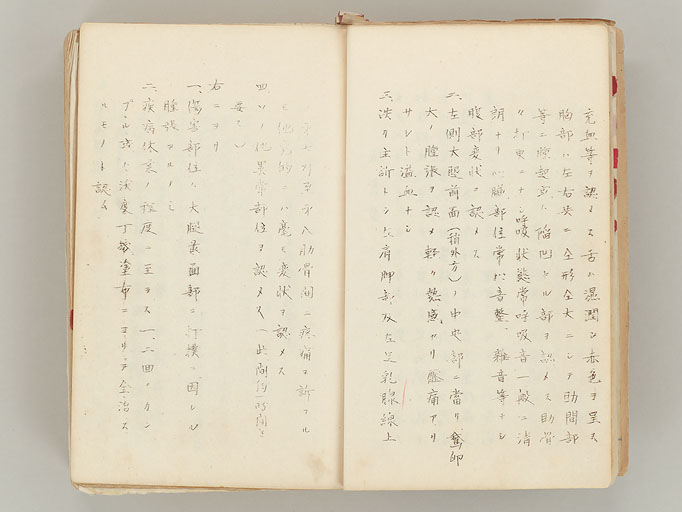 充血等ヲ認メス舌ハ濕潤シ赤色ヲ呈ス
胸部ハ左右共ニ全形全大ニシテ肋間部
等ニ膨起或ハ陷凹セル部ヲ認メス肋骨
呼吸状態常呼吸音一般ニ清
調ナリ心臓部位常心音整、雜音等ナシ
腹部変状ヲ認メス
二、左側大腿前面(稍外方)ノ中央部ニ當リ鵞卵
大ノ腫張ヲ認メ輕ク熱感アリ壓痛アリ
サレト溢血ナシ
三、次ニ主訴トシテ肩胛部及左足乳腺線上
第八肋骨間ニ疼痛ヲ訴フル
モ他覚的ニハ毫モ変状ヲ認メス
四、ソノ他異常部位ヲ認メス(此間約一時間ヲ
要ス)
右ニヨリ
一、傷害部位ハ大腿前面部ニ打撲ニ因レル
腫張アルノミ
二、疾病休業ノ程度ニ至ラス一、二回ノカン
フル或ハ沃度丁幾塗布ニヨリテ全治ス
ルモノト認ム